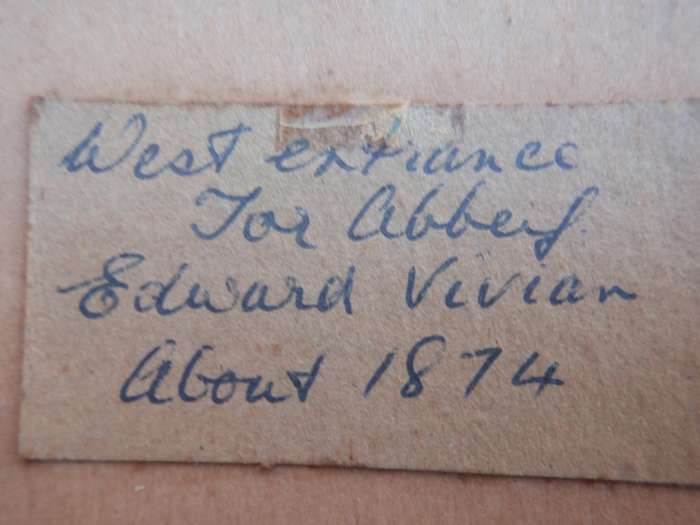 West entrance
Tor Abbey.
Edward Vivian
About 1874